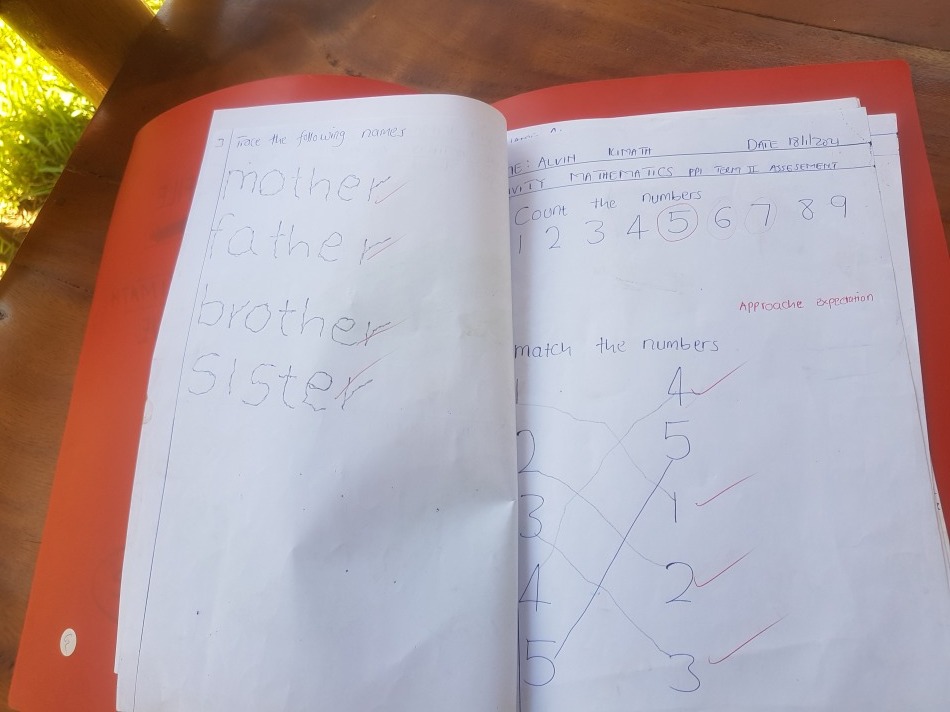 3 Trace the following names
mother
father
brother
sister
A.
ME: ALVIN KIMATH DATE 18/1/2021
VITY MATHEMATICS PP1 TERM II ASSESEMENT
Count the numbers
1 2 3 4 5 6 7 8 9
Approache expectation
match the numbers
1 4
2 5
3 1
4 2
5 3